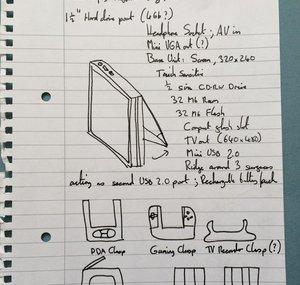 1½" Hard drive port (4Gb?)
Headphone Socket; AV in
Mini VGA out (?)
Base Unit: Screen, 320x240
Touch Sensitive
½ size CDRW Drive
32 Mb Ram
32 Mb Flash
Compact flash slot
TV out (640x480)
Mini USB 2.0
Ridge around 3 surfaces
acting as second USB 2.0 port; Rechargable battery pack
PDA Clasp Gaming Clasp TV Recorder Clasp (?)